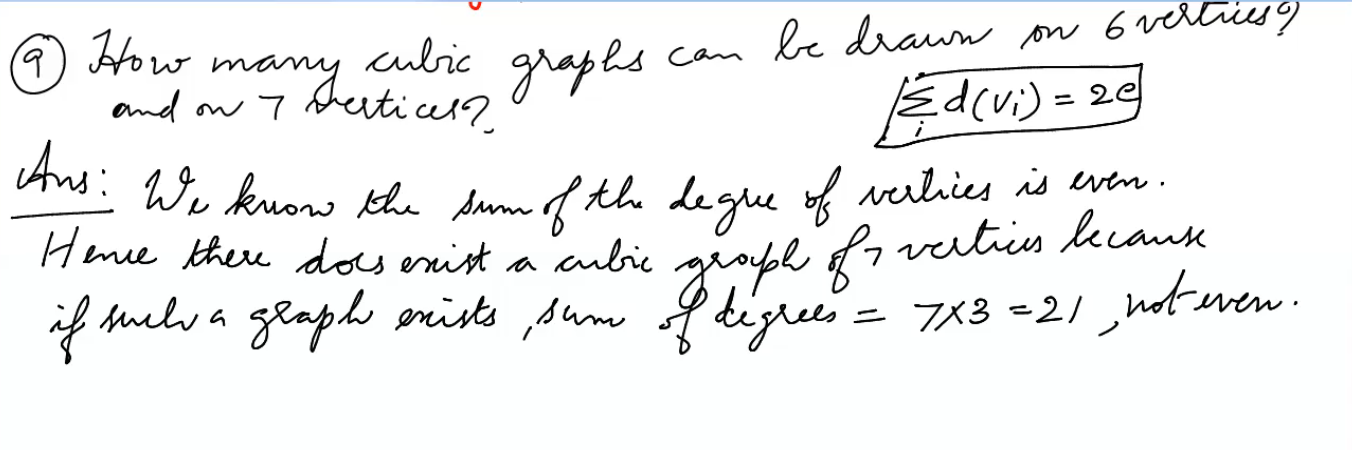 ⑨ How many cubic graphs can be drawn on 6 vertices?
and on 7 vertices?
∑ᵢ d(vᵢ) = 2e
Ans: We know the sum of the degree of vertices is even.
Hence there does exist a cubic graph of 7 vertices because
if such a graph exists, sum of degrees = 7×3 = 21, not even.